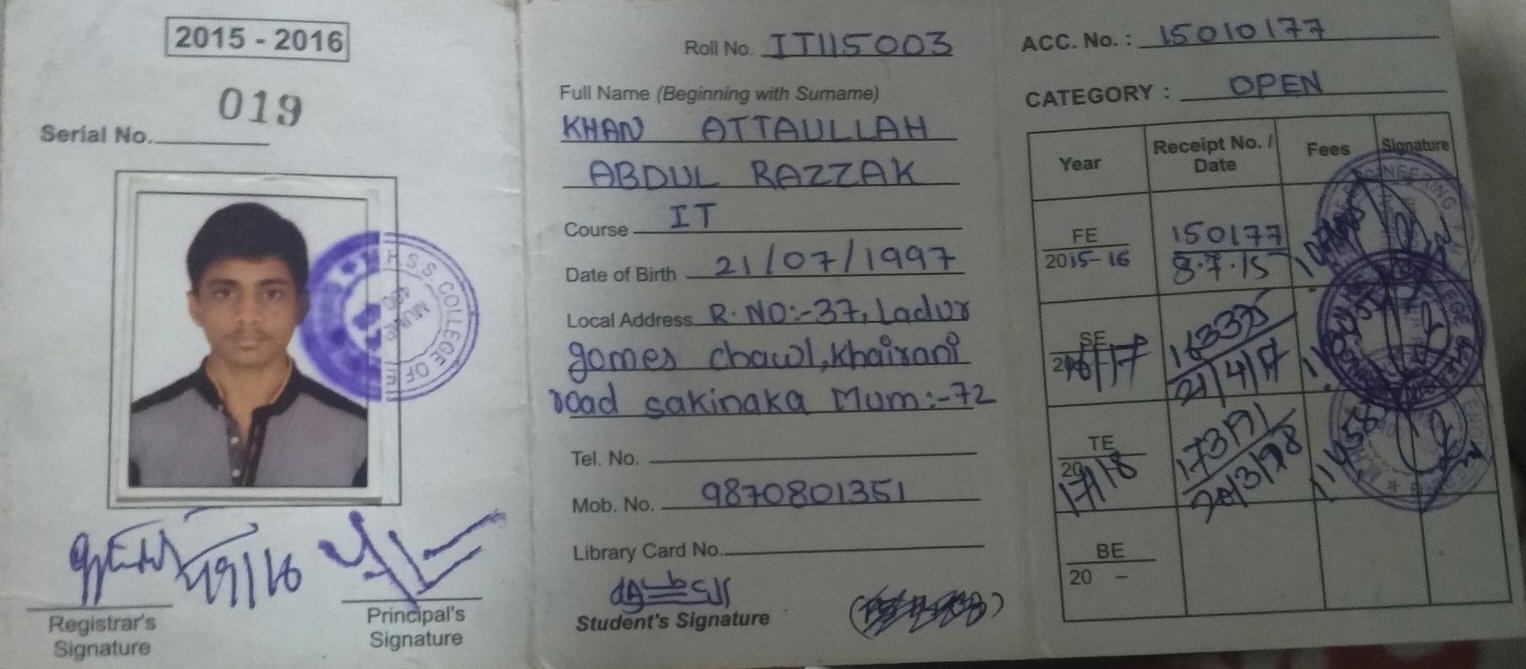 2015 - 2016
019
Serial No.
H.S.S. COLLEGE OF
Registrar's
Signature
Principal's
Signature
Roll No. IT115003
Full Name (Beginning with Surname)
KHAN ATTAULLAH
ABDUL RAZZAK
Course IT
Date of Birth 21/07/1997
Local Address R.NO:-37, Ladur
gomes chawl, Khairani
road sakinaka Mum:-72
Tel. No.
Mob. No. 9870801351
Library Card No.
Student's Signature
ACC. No. : 15010177
CATEGORY : OPEN
Year Receipt No. / Date Fees Signature
FE 2015-16 150177 8.7.15
SE 2016/17 21/4/17
TE 2017/18 17391
BE 20 -